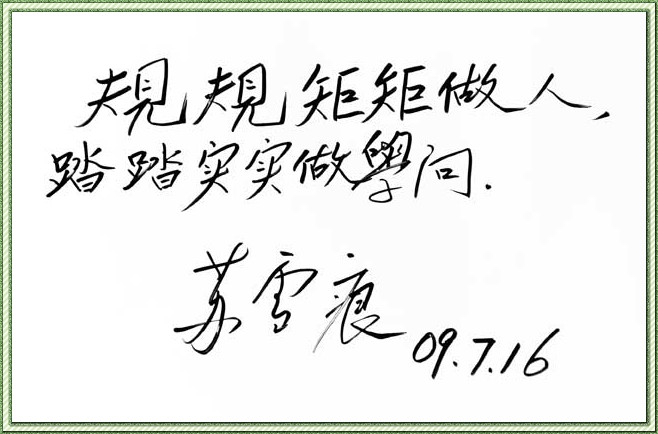 規規矩矩做人,
踏踏实实做學问.
苏雪痕 09.7.16